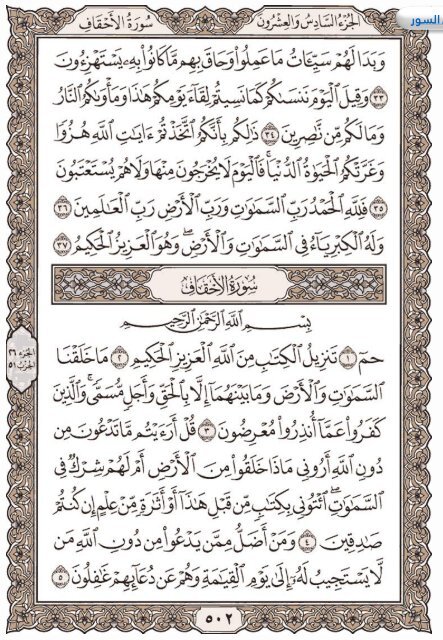 السور
سُورَةُ الأَحْقَافِ
الجُزْءُ السَّادِسُ وَالعِشْرُونَ
وَبَدَا لَهُمْ سَيِّئَاتُ مَا عَمِلُوا۟ وَحَاقَ بِهِم مَّا كَانُوا۟ بِهِۦ يَسْتَهْزِءُونَ
٣٣ وَقِيلَ ٱلْيَوْمَ نَنسَىٰكُمْ كَمَا نَسِيتُمْ لِقَآءَ يَوْمِكُمْ هَـٰذَا وَمَأْوَىٰكُمُ ٱلنَّارُ
وَمَا لَكُم مِّن نَّـٰصِرِينَ ٣٤ ذَٰلِكُم بِأَنَّكُمُ ٱتَّخَذْتُمْ ءَايَـٰتِ ٱللَّهِ هُزُوًا
وَغَرَّتْكُمُ ٱلْحَيَوٰةُ ٱلدُّنْيَا ۚ فَٱلْيَوْمَ لَا يُخْرَجُونَ مِنْهَا وَلَا هُمْ يُسْتَعْتَبُونَ
٣٥ فَلِلَّهِ ٱلْحَمْدُ رَبِّ ٱلسَّمَـٰوَٰتِ وَرَبِّ ٱلْأَرْضِ رَبِّ ٱلْعَـٰلَمِينَ ٣٦
وَلَهُ ٱلْكِبْرِيَآءُ فِى ٱلسَّمَـٰوَٰتِ وَٱلْأَرْضِ ۖ وَهُوَ ٱلْعَزِيزُ ٱلْحَكِيمُ ٣٧
سُورَةُ الأَحْقَافِ
بِسْمِ ٱللَّهِ ٱلرَّحْمَـٰنِ ٱلرَّحِيمِ
حمٓ ١ تَنزِيلُ ٱلْكِتَـٰبِ مِنَ ٱللَّهِ ٱلْعَزِيزِ ٱلْحَكِيمِ ٢ مَا خَلَقْنَا
ٱلسَّمَـٰوَٰتِ وَٱلْأَرْضَ وَمَا بَيْنَهُمَآ إِلَّا بِٱلْحَقِّ وَأَجَلٍ مُّسَمًّى ۚ وَٱلَّذِينَ
كَفَرُوا۟ عَمَّآ أُنذِرُوا۟ مُعْرِضُونَ ٣ قُلْ أَرَءَيْتُم مَّا تَدْعُونَ مِن
دُونِ ٱللَّهِ أَرُونِى مَاذَا خَلَقُوا۟ مِنَ ٱلْأَرْضِ أَمْ لَهُمْ شِرْكٌ فِى
ٱلسَّمَـٰوَٰتِ ۖ ٱئْتُونِى بِكِتَـٰبٍ مِّن قَبْلِ هَـٰذَآ أَوْ أَثَـٰرَةٍ مِّنْ عِلْمٍ إِن كُنتُمْ
صَـٰدِقِينَ ٤ وَمَنْ أَضَلُّ مِمَّن يَدْعُوا۟ مِن دُونِ ٱللَّهِ مَن
لَّا يَسْتَجِيبُ لَهُۥٓ إِلَىٰ يَوْمِ ٱلْقِيَـٰمَةِ وَهُمْ عَن دُعَآئِهِمْ غَـٰفِلُونَ ٥
الجزء ٢٦
الحزب ٥١
٥٠٢